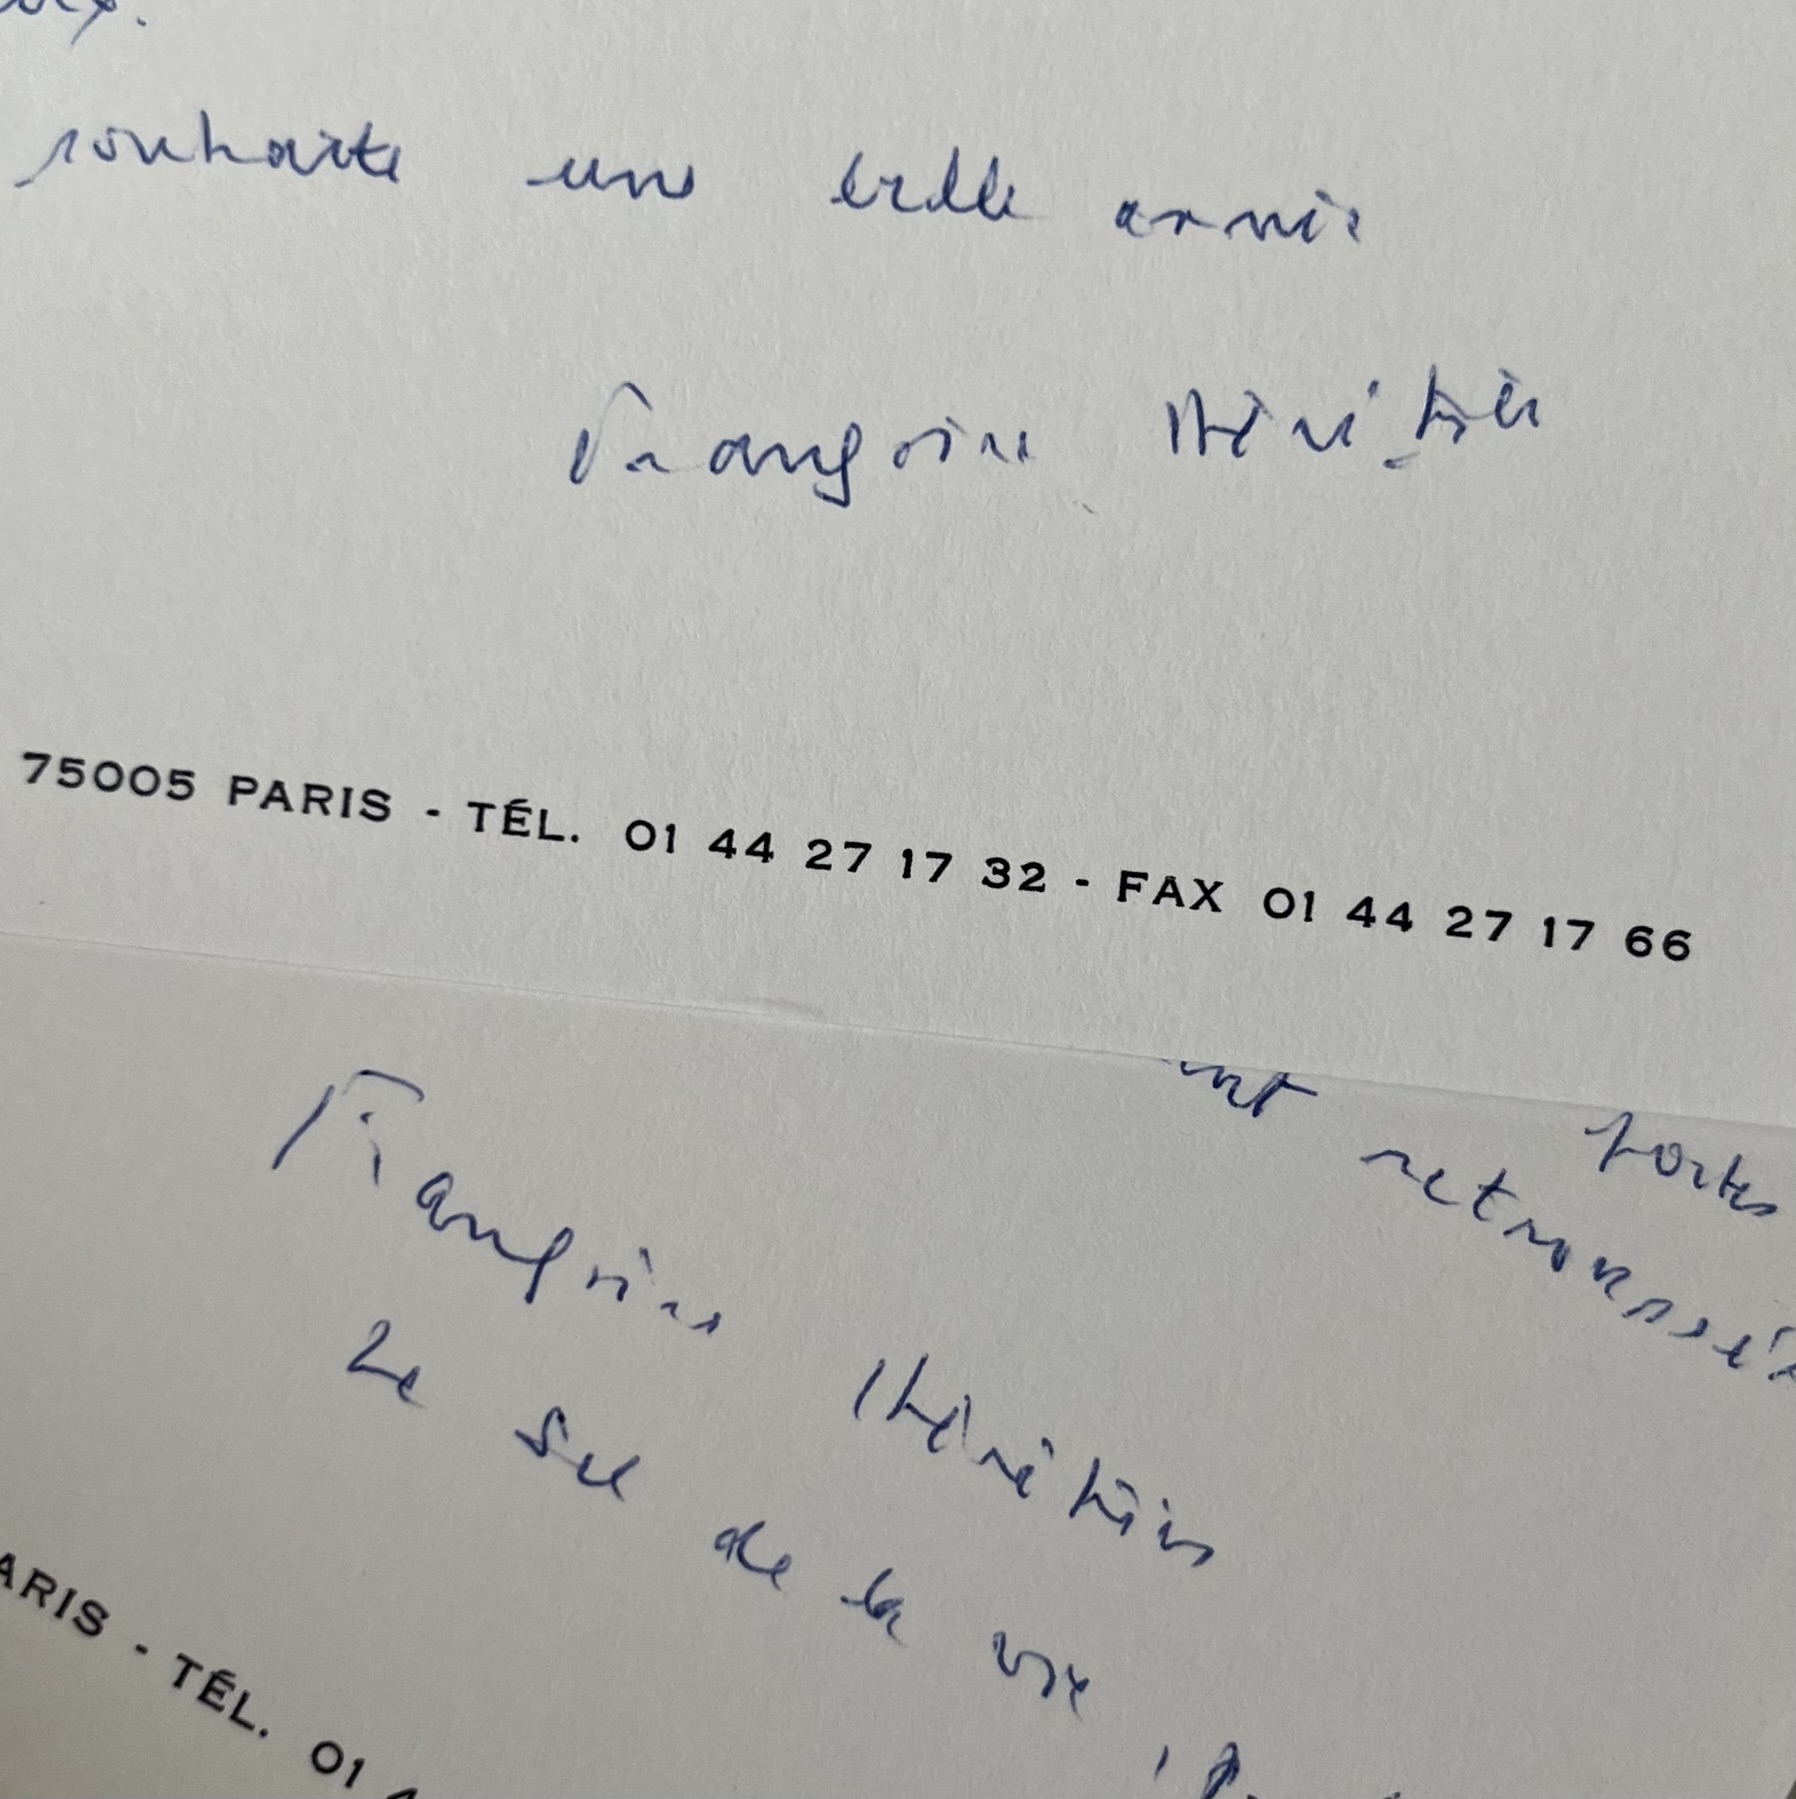 souhaite une belle année
Françoise Héritier
75005 PARIS - TÉL. 01 44 27 17 32 - FAX 01 44 27 17 66
fortes
retroussées
Françoise Héritier
Le Sel de la vie,
ARIS - TÉL. 01